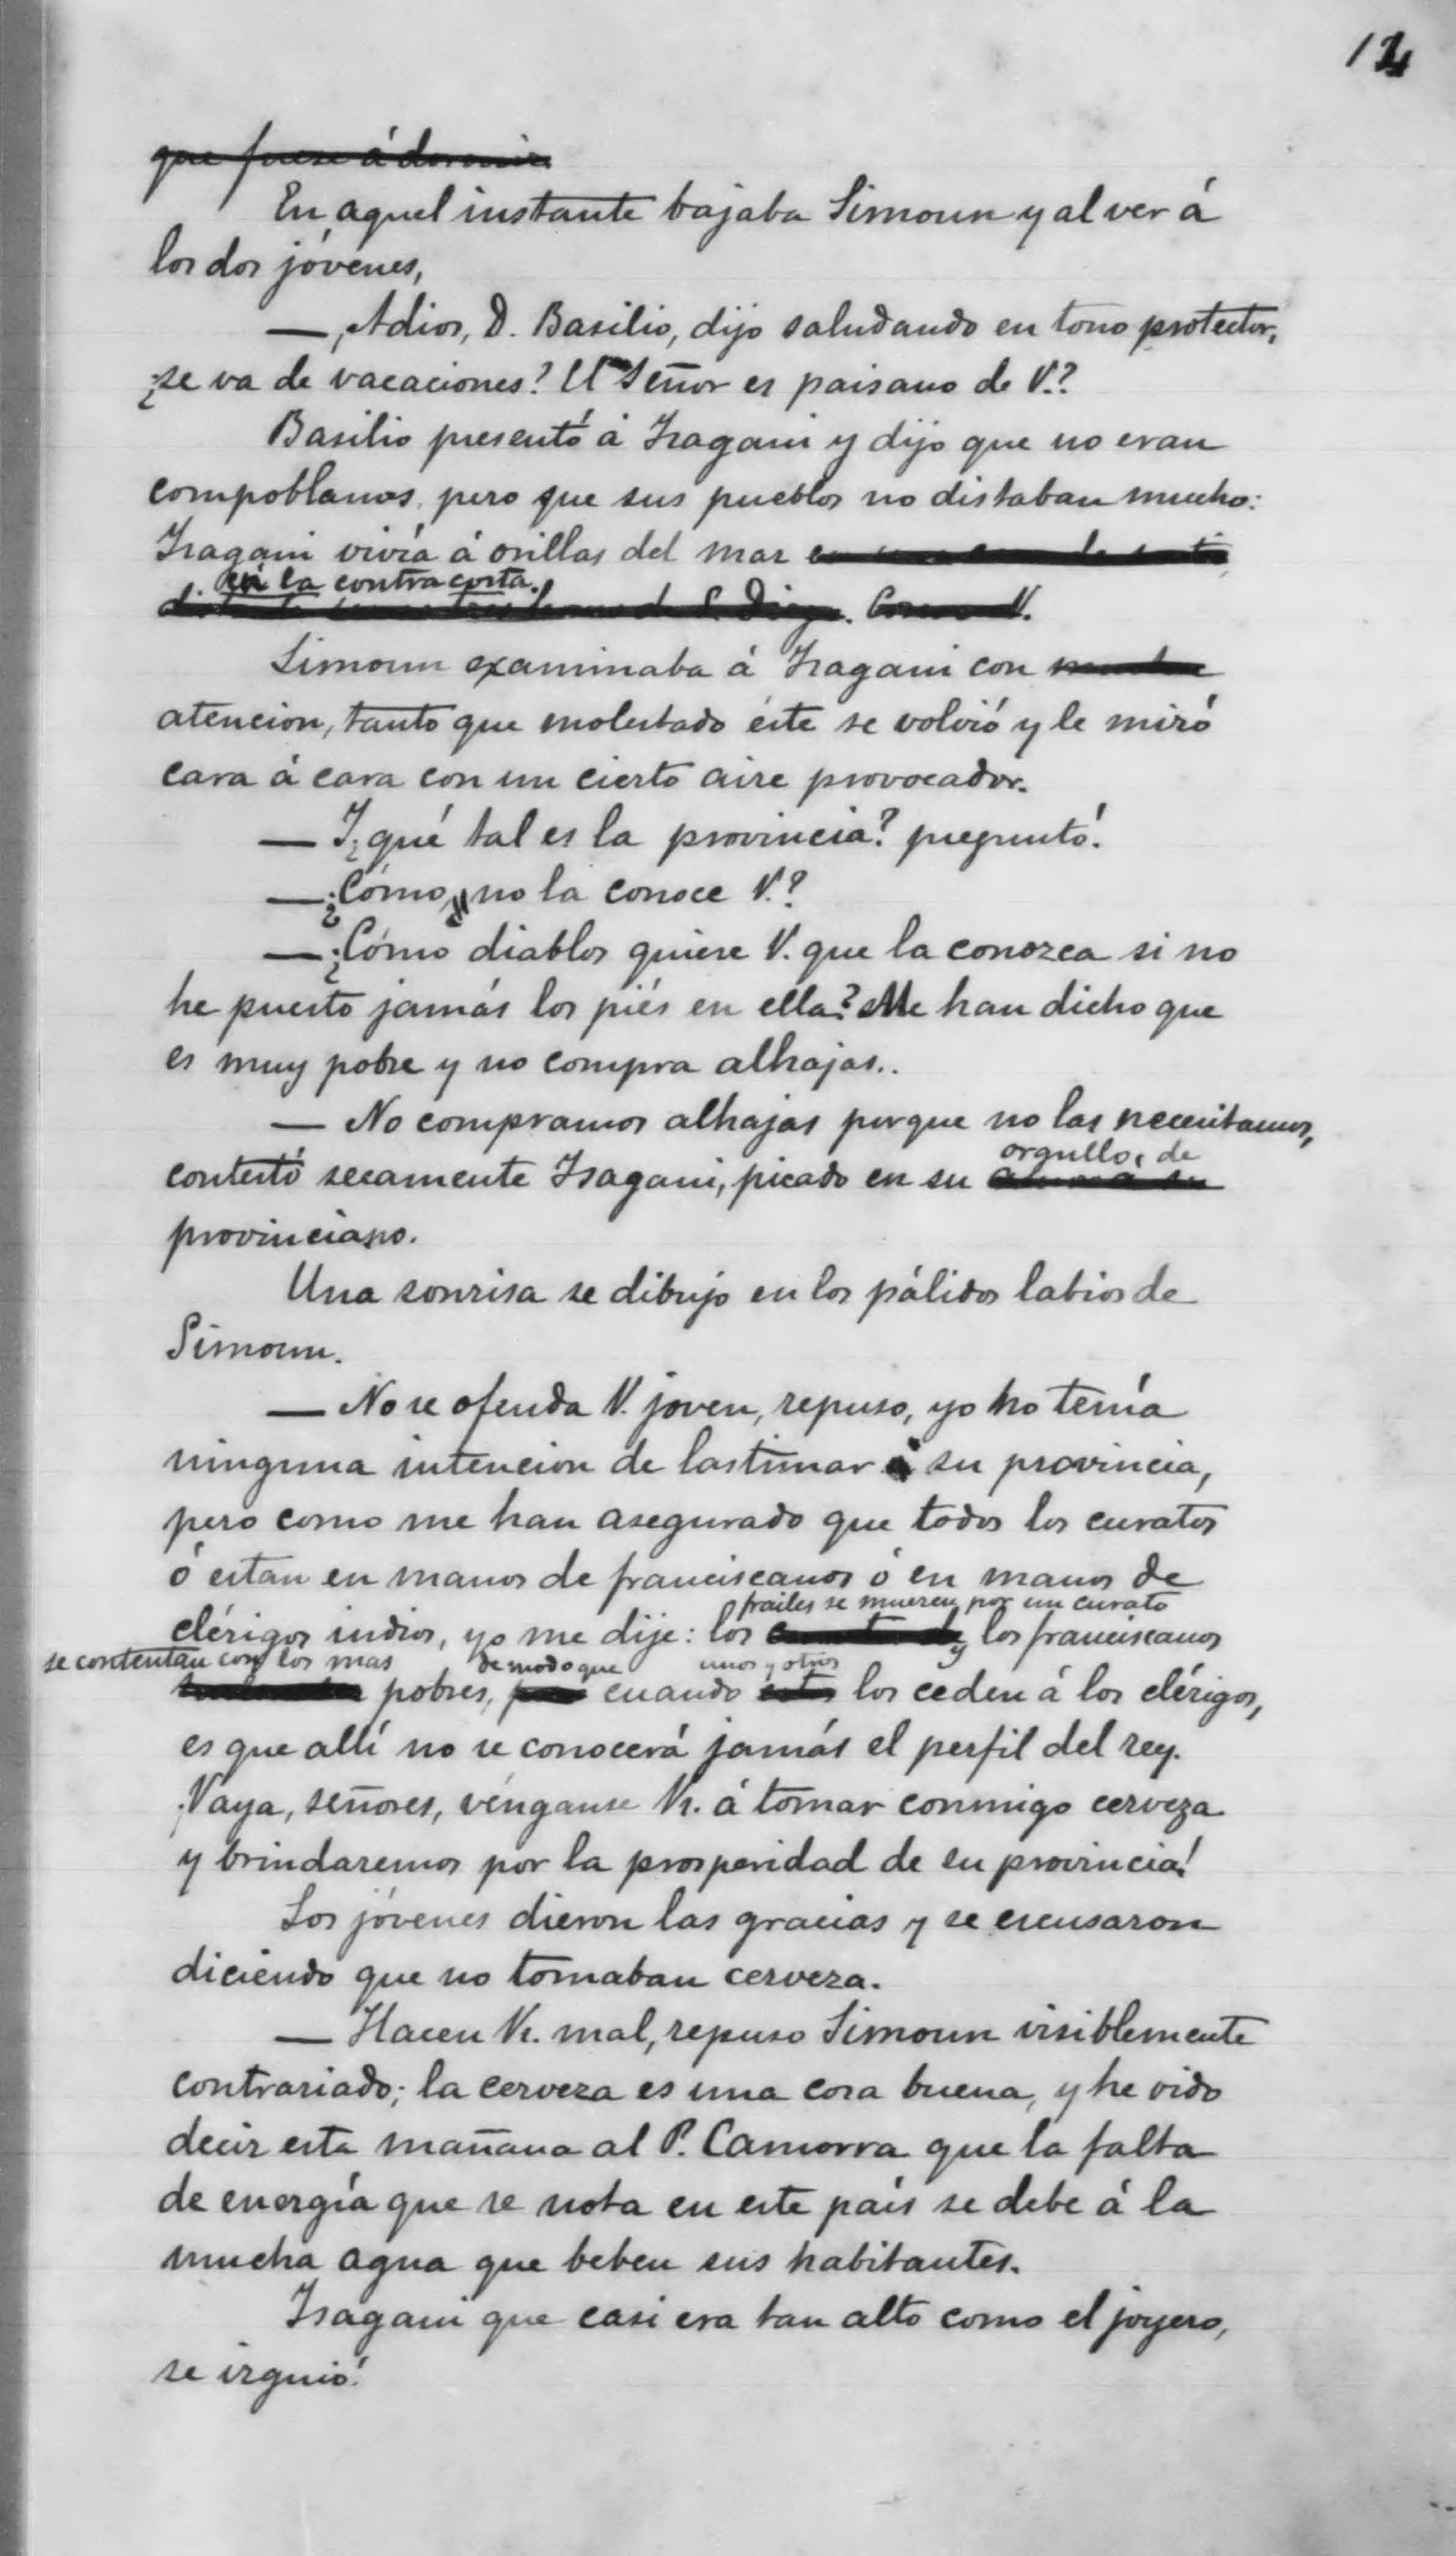 12
que fuese á dormir
En aquel instante bajaba Simoun y al ver á
los dos jóvenes,
— ¡Adios, D. Basilio, dijo saludando en tono protector,
¿se va de vacaciones? El Señor es paisano de V.?
Basilio presentó á Isagani y dijo que no eran
compoblanos, pero que sus pueblos no distaban mucho:
Isagani vivía á orillas del mar
en la contracosta.
S. Diego. Como V.
Simoun examinaba á Isagani con
atencion, tanto que molestado éste se volvió y le miró
cara á cara con un cierto aire provocador.
— Y ¿qué tal es la provincia? preguntó.
— ¿Cómo, no la conoce V.?
— ¿Cómo diablos quiere V. que la conozca si no
he puesto jamás los piés en ella? Me han dicho que
es muy pobre y no compra alhajas..
— No compramos alhajas porque no las necesitamos,
orgullo, de
contestó secamente Isagani, picado en su
provinciano.
Una sonrisa se dibujo en los pálidos labios de
Simoun.
— No se ofenda V. joven, repuso, yo no tenía
ninguna intencion de lastimar á su provincia,
pero como me han asegurado que todos los curatos
ó estan en manos de franciscanos ó en manos de
frailes se mueren por un curato
clérigos indios, yo me dije: los y los franciscanos
se contentan con los mas de modo que unos y otros
pobres, cuando los ceden á los clérigos,
es que allí no se conocerá jamás el perfil del rey.
¡Vaya, señores, vénganse Vs. á tomar conmigo cerveza
y brindaremos por la prosperidad de su provincia!
Los jóvenes dieron las gracias y se escusaron
diciendo que no tomaban cerveza.
— Hacen Vs. mal, repuso Simoun visiblemente
contrariado; la cerveza es una cosa buena, y he oido
decir esta mañana al P. Camorra que la falta
de energía que se nota en este país se debe á la
mucha agua que beben sus habitantes.
Isagani que casi era tan alto como el joyero,
se irguió.